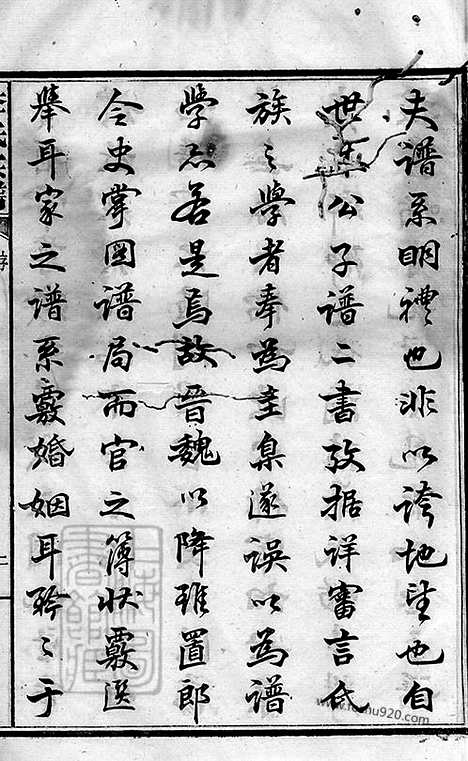 夫譜系明禮也非以誇地望也自
世王公子譜二書攷据詳審言氏
族之學者奉為圭臬遂誤以為譜
學忽若是焉故晉魏以降雖置郎
令史掌圖譜局而官之簿狀覈選
舉耳家之譜系覈婚姻耳矜〻于
序
www.foshu920.com